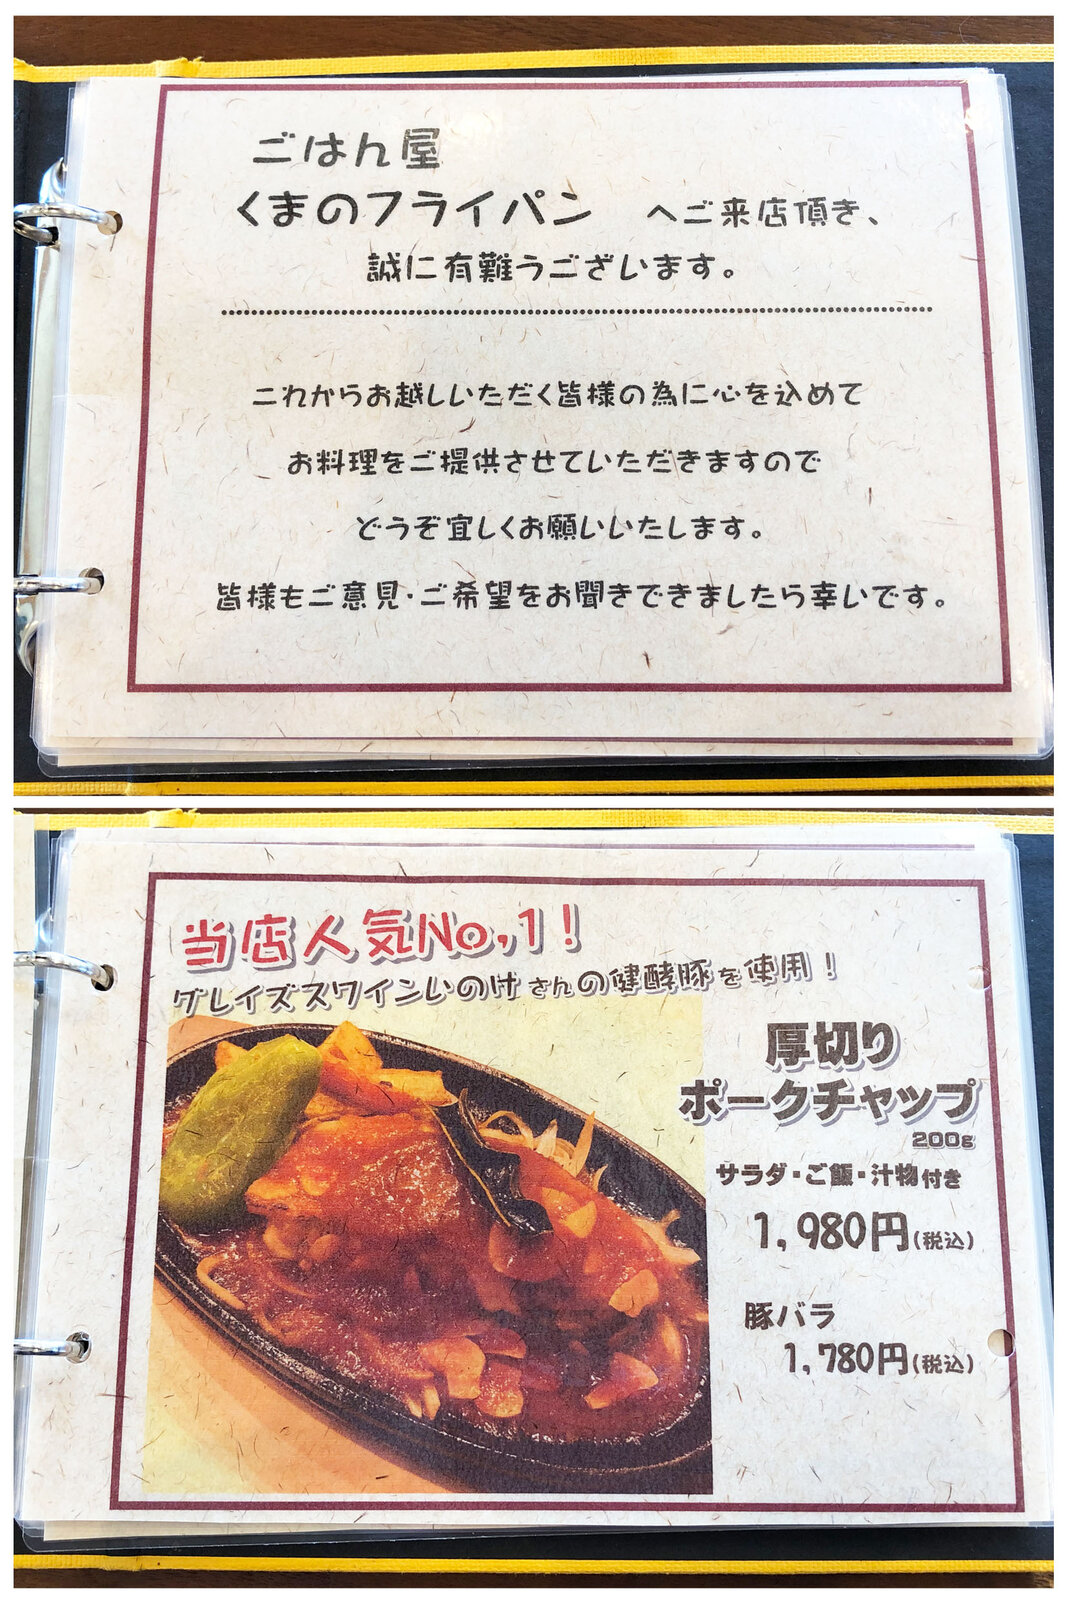 ごはん屋
くまのフライパン へご来店頂き、
誠に有難うございます。
これからお越しいただく皆様の為に心を込めて
お料理をご提供させていただきますので
どうぞ宜しくお願いいたします。
皆様もご意見・ご希望をお聞きできましたら幸いです。
当店人気No,1！
グレイズスワインしいのけさんの健酵豚を使用！
厚切り
ポークチャップ
200g
サラダ・ご飯・汁物付き
1,980円(税込)
豚バラ
1,780円(税込)